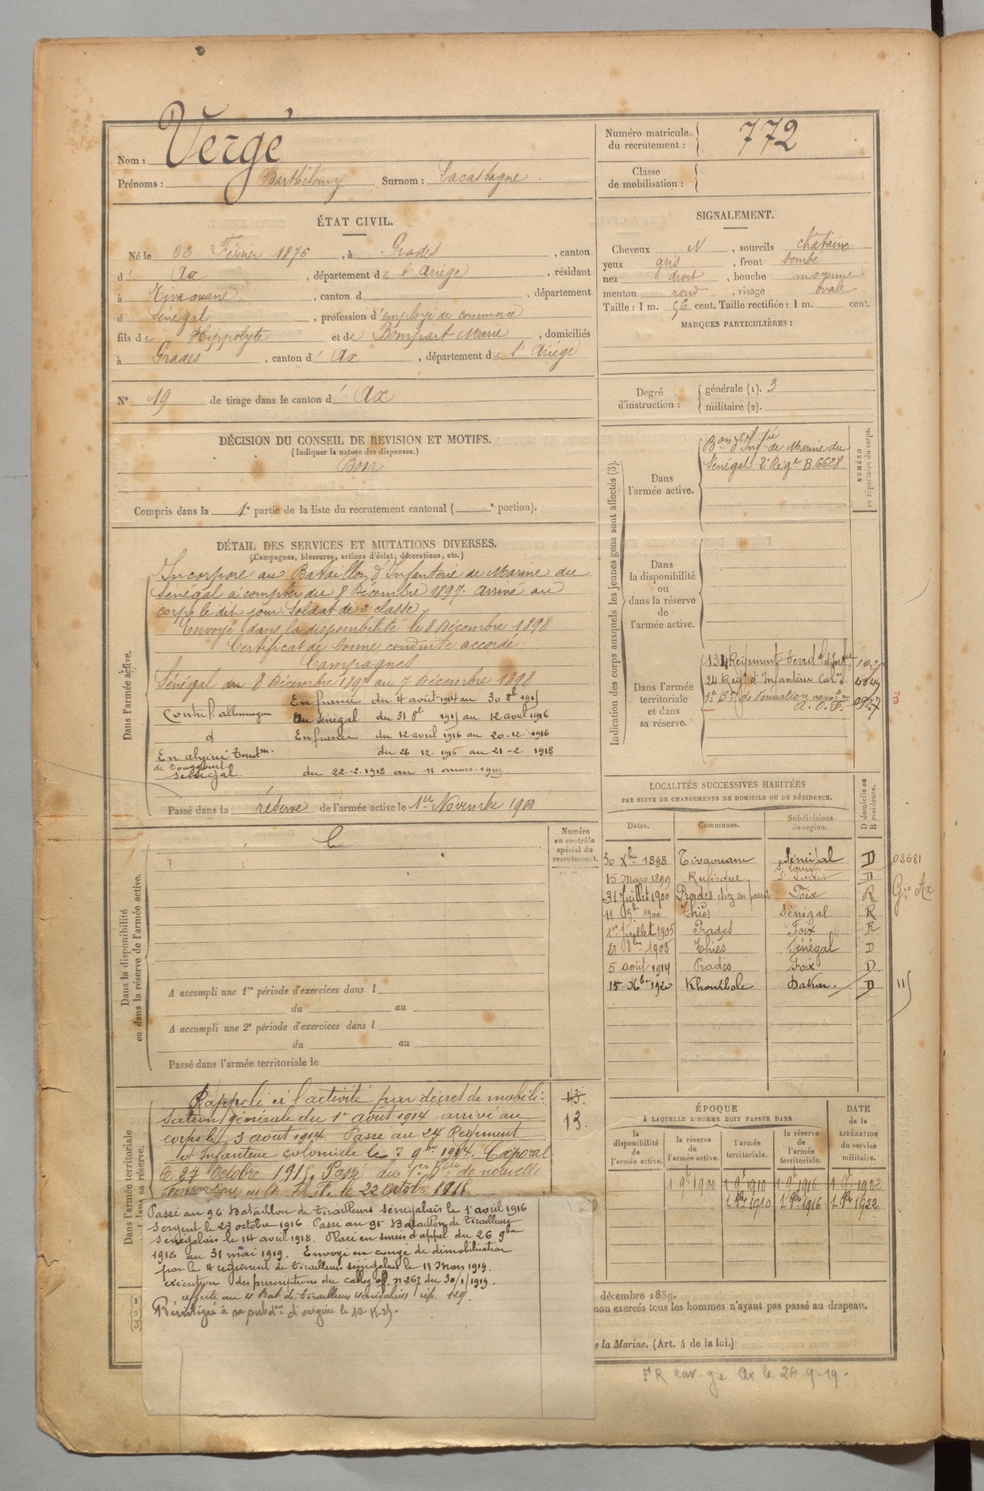 Nom : Vergé
Prénoms : Barthélémy Surnom : Lacastagne
Numéro matricule du recrutement : 772
Classe de mobilisation :
ÉTAT CIVIL.
Né le 23 Février 1876, à Prades, canton
d' Ax, département de l'Ariège, résidant
à Tivaouane, canton d , département
d Sénégal, profession d'employé de commerce
fils de Hippolyte et de Bompart Marie, domiciliés
à Prades, canton d' Ax, département de l'Ariège
N° 19 de tirage dans le canton d' Ax
SIGNALEMENT.
Cheveux N, sourcils châtains
yeux gris, front bombé
nez droit, bouche moyenne
menton rond, visage ovale
Taille : 1 m. 56 cent. Taille rectifiée : 1 m. cent.
MARQUES PARTICULIÈRES :
Degré d'instruction : générale (1). 3
militaire (2).
DÉCISION DU CONSEIL DE REVISION ET MOTIFS.
(Indiquer la nature des dispenses.)
Bon
Compris dans la 1e partie de la liste du recrutement cantonal ( e portion).
DÉTAIL DES SERVICES ET MUTATIONS DIVERSES.
(Campagnes, blessures, actions d'éclat, décorations, etc.)
Dans l'armée active.
Incorporé au Bataillon d'Infanterie de Marine du
Sénégal à compter du 8 Décembre 1897. Arrivé au
corps le dit jour. Soldat de 2e classe
Envoyé dans la disponibilité le 8 Décembre 1898
Certificat de bonne conduite accordé
Campagnes
Sénégal du 8 Décembre 1897 au 7 Décembre 1898
En france du 4 août 1914 au 30 8bre 1915
Contre l'allemagne Au Sénégal du 31 8bre 1915 au 12 avril 1916
d En france du 12 avril 1916 au 20-12-1916
En algérie
du 26 12 1916 au 21-2-1918
Sénégal du 22-2-1918 au 11 mars 1919
Passé dans la réserve de l'armée active le 1er Novembre 1900
Indication des corps auxquels les jeunes gens sont affectés (3).
NUMÉRO au répertoire du corps.
Dans l'armée active.
Bon d'Infie de Marine du
Sénégal 2e Régt B.6628
Dans la disponibilité ou dans la réserve de l'armée active.
Dans l'armée territoriale et dans sa réserve.
134 Régiment Territ d'Infie
24 Régt d'Infanterie Cole
1er Bon de formation nouvelle
A. O. F.
3
LOCALITÉS SUCCESSIVES HABITÉES
PAR SUITE DE CHANGEMENTS DE DOMICILE OU DE RÉSIDENCE.
Dates. Communes. Subdivisions de région. D domicile ou R résidence.
30 Xbre 1898 Tivaouane Sénégal D 03681
15 Mars 1899 Rufisque St Louis D
31 Juillet 1900 Prades chez ses parents Foix R Gie Ax
11 9bre 1900 Thiès Sénégal R
1er Juillet 1905 Prades Foix R
20 8bre 1905 Thiès Sénégal D
5 août 1914 Prades Foix D
15 Xbre 1920 Khombole Dakar D 11
Dans la disponibilité ou dans la réserve de l'armée active.
Numéro au contrôle spécial du recrutement.
A accompli une 1re période d'exercices dans l
du au
A accompli une 2e période d'exercices dans l
du au
Passé dans l'armée territoriale le
Dans l'armée territoriale et dans sa réserve.
Rappelé à l'activité par décret de mobili-
sation générale du 1er août 1914. arrivé au
corps le 3 août 1914. Passé au 24 Régiment
d'Infanterie coloniale le 7 9bre 1914. Caporal
le 27 Octobre 1915. Passé au 1er Bon de nouvelle
formation en A. O. F. le 22 Octobre 1918
13.
13.
Passé au 96 Bataillon de tirailleurs Sénégalais le 1er avril 1916
Sergent le 27 octobre 1916. Passé au 91 Bataillon de tirailleurs
Sénégalais le 14 avril 1918. Placé en sursis d'appel du 26 9bre
1918 au 31 mai 1919. Envoyé en congé de démobilisation
par le 4 régiment de tirailleurs sénégalais le 11 mars 1919.
exécution des prescriptions du du 30/1/1919.
affecté au 4 Bat de tirailleurs sénégalais
Réintégré à sa d'origine le
ÉPOQUE
À LAQUELLE L'HOMME DOIT PASSER DANS
la disponibilité de l'armée active. la réserve de l'armée active. l'armée territoriale. la réserve de l'armée territoriale.
DATE de la LIBÉRATION du service militaire.
1 9bre 1900 1 9bre 1910 1 9bre 1916 1 9bre 1922
1 Xbre 1910 1 Xbre 1916 1 Xbre 1922
décembre 1889.
non exercés tous les hommes n'ayant pas passé au drapeau.
e la Marine. (Art. 4 de la loi.)
FR env. gie Ax le 24-9-19-